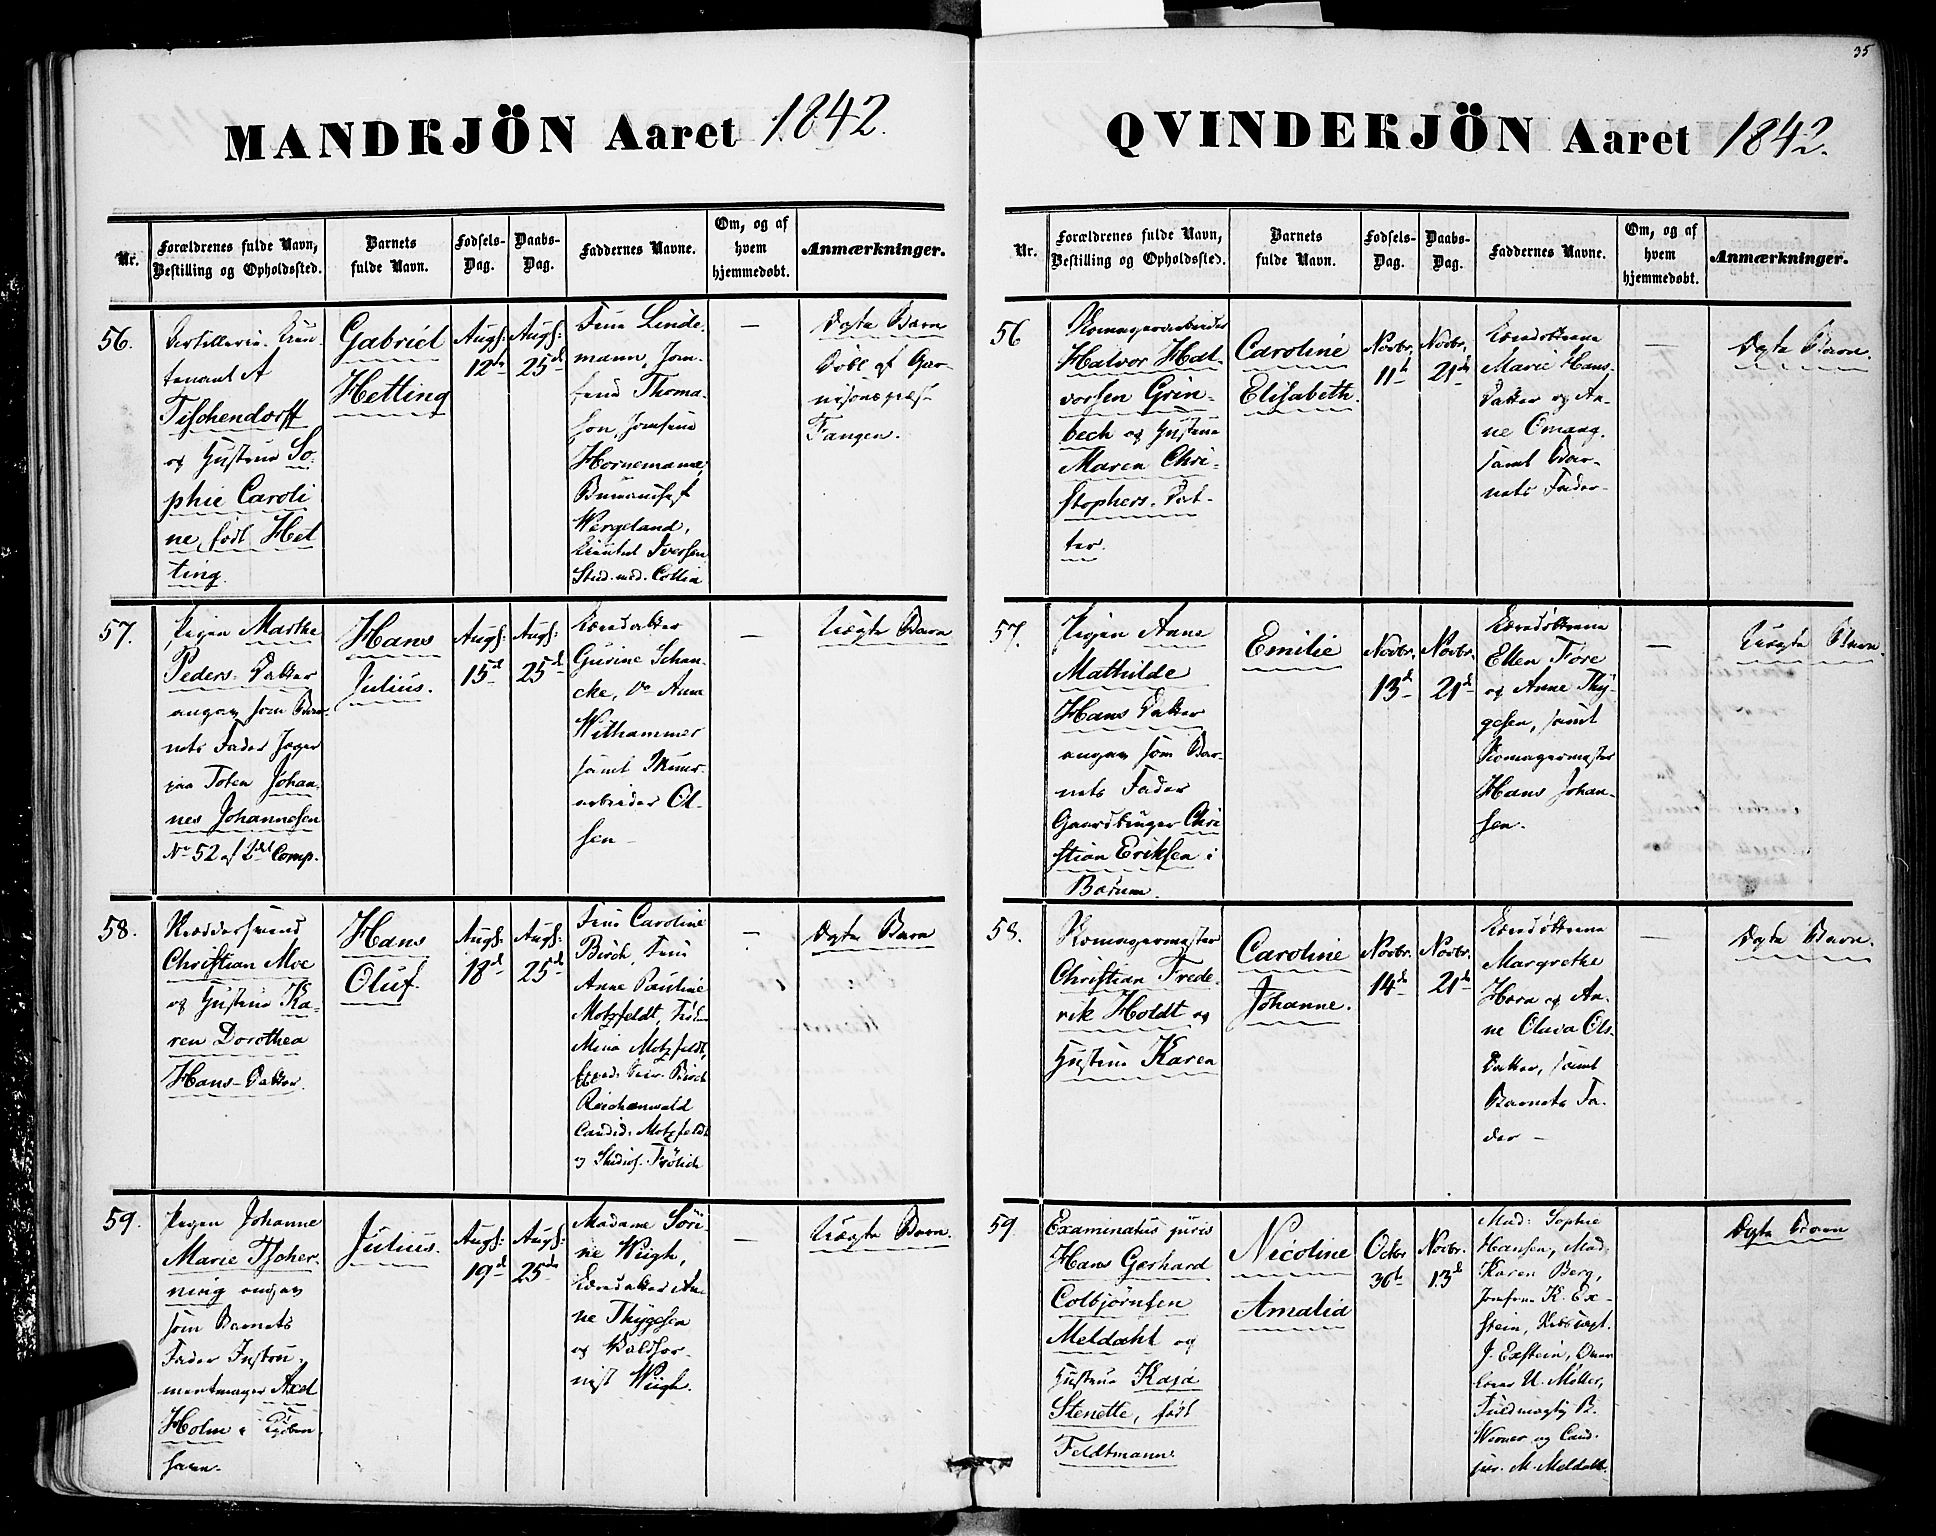 35
MANDKJÖN Aaret 1842.
Nr.
Forældrenes fulde Navn,
Bestilling og Opholdssted.
Barnets
fulde Navn.
Fødsels-
Dag.
Daabs-
Dag.
Faddernes Navne.
Om, og af
hvem
hjemmedøbt.
Anmærkninger.
56.
tenant A
Tischendorff
og Hustrue So-
phie Caroli
ne, født Het
ting.
Gabriel
Hetting
Augs:
12te
Augs:
25de
Frue Linde-
mann, Jom-
frue Thoma-
son, Jomfrue
Hornemann,
Wergeland,
Iversen
Stud. med. Collin
—
Ægte Barn
Døbt af Gar-
nisonspræst
Fangen.
57.
Pigen Marthe
Peders Datter
angav som Bar-
nets Fader Jæger
paa Toten Johan-
nes Johannesen
No 52 af 2det Comp.
Hans
Julius.
Augs:
15de
Augs:
25de
Gurine Schan-
cke, Do Anne
Withammer
samt Muur-
arbeider Ol-
sen -
—
Uægte Barn
58.
Skræddersvend
Christian Moe
og Hustrue Ka-
ren Dorothea
Hans-Datter.
Hans
Oluf.
Augs:
18de
Augs:
25de
Frue Caroline
Birch, Frue
Anne Pauline
Motzfeldt, Frøken
Mina Motzfeldt,
Birch
Reichenwald
Candid. Motzfeldt
og Studios. Frölich
—
Ægte Barn
59.
Pigen Johanne
Marie Tscher-
ning angav
som Barnets
Fader Instru-
mentmager Axel
Holm i Kjöben-
havn.
Julius.
Augs:
19de
Augs:
25de
Madame Söri-
ne Wiigh,
An-
ne Thygesen
og Waldhor-
nist Wiigh.
—
Uægte Barn.
QVINDEKJÖN Aaret 1842.
Nr.
Forældrenes fulde Navn,
Bestilling og Opholdssted.
Barnets
fulde Navn.
Fødsels-
Dag.
Daabs-
Dag.
Faddernes Navne.
Om, og af
hvem
hjemmedøbt.
Anmærkninger.
56
Komagerarbeider
Halvor Hal-
vorsen Grin-
bech og Hustrue
Maren Chri-
stophers-Dat-
ter.
Caroline
Elisabeth.
Novbr.
11te
Novbr.
21de
Marie Hans-
Datter og An-
ne Omang,
samt Bar-
nets Fader-
—
Ægte Barn
57.
Pigen Anne
Mathilde
Hans Datter
angav som Bar-
nets Fader
Gaardbruger Chri
stian Eriksen i
Bærum.
Emilie
Novbr.
13de
Novbr.
21de
Ellen Fore
og Anne Thy-
gesen, samt
Komagermester
Hans Johan-
sen.
—
Uægte Barn.
58.
Komagermester
Christian Frede-
rik Holdt og
Hustrue Karen
Caroline
Johanne.
Novbr.
14de
Novbr.
21de
Margrethe
Horn og An-
ne Olava Ols-
Datter, samt
Barnets Fa-
der -
—
Ægte Barn.
59
Examinatus juris
Hans Gerhard
Colbjörnsen
Meldahl og
Hustrue Kaja
Stenette, født
Feldtmann.
Nicoline
Amalia
Octbr
30te
Novbr.
13de
Mad: Sophie
Hansen, Mad.
Karen Berg,
Jomfrue K. Ex-
stein,
J. Exstein,
U. Möller,
Fuldmægtig B.
Werner og Cand.
jur. M. Meldahl.
Ægte Barn